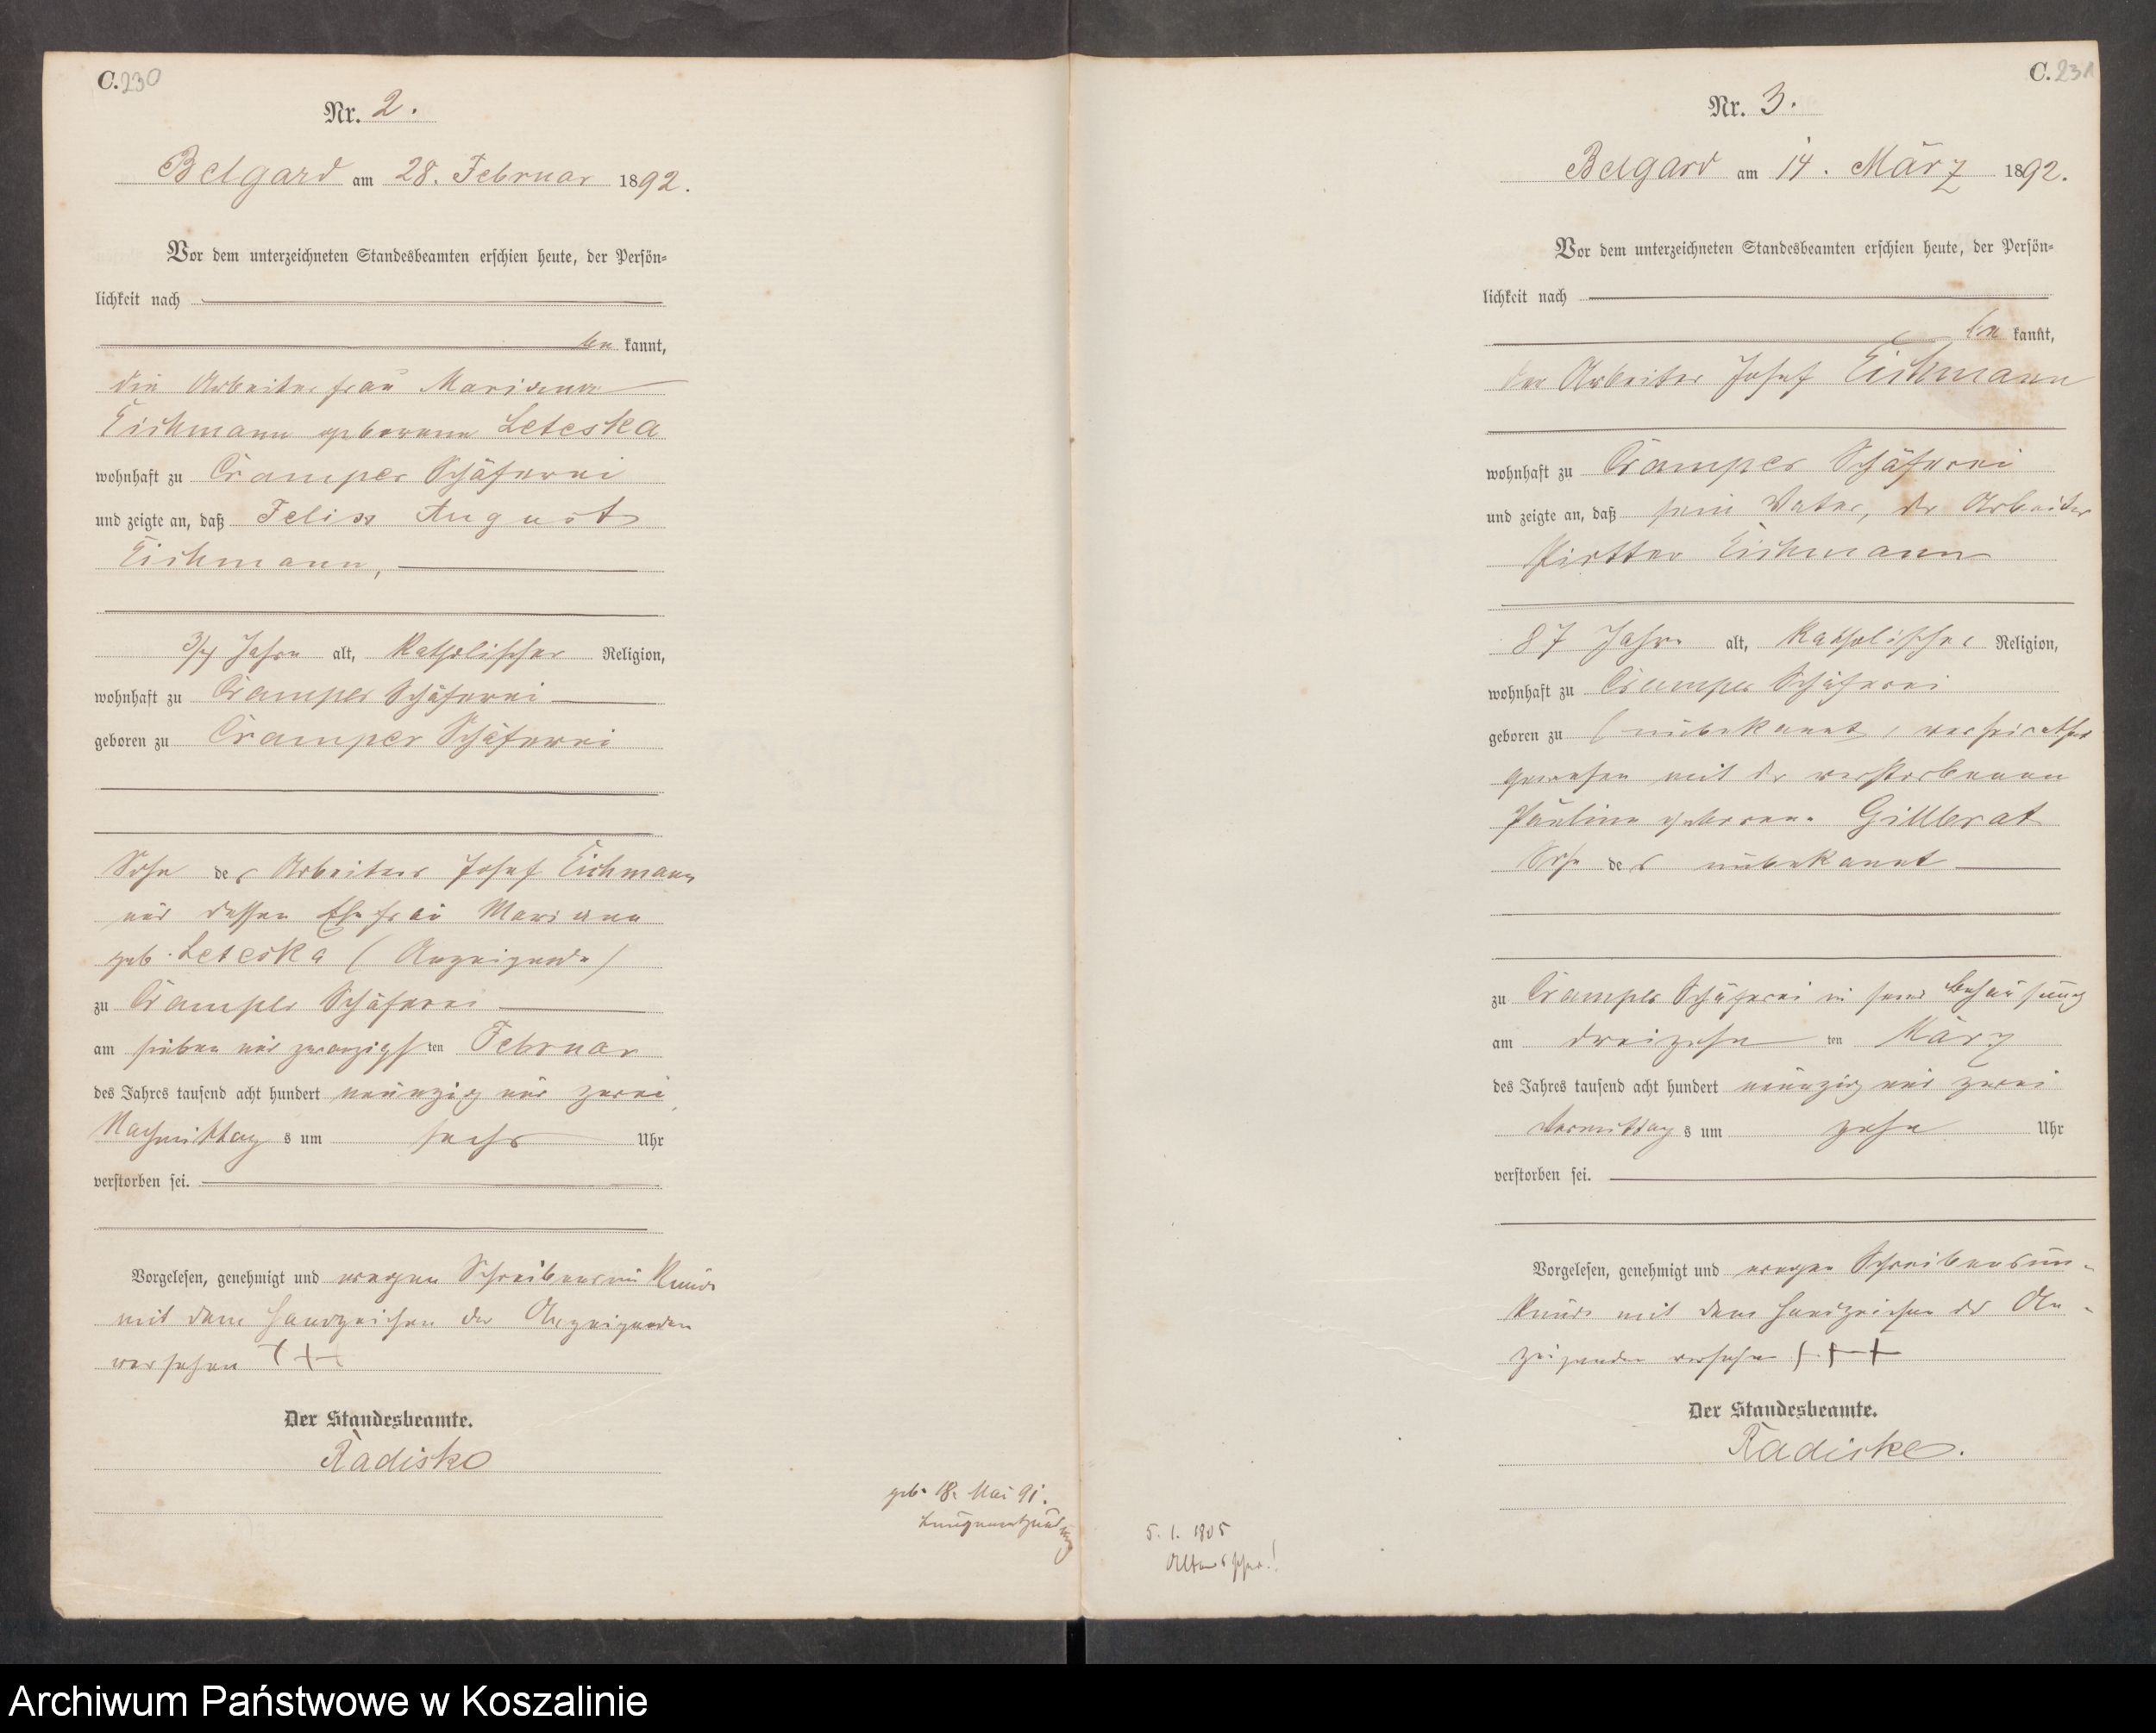 C. 230
Nr. 2.
Belgard am 28. Februar 1892.
Vor dem unterzeichneten Standesbeamten erschien heute, der Persön-
lichkeit nach
be kannt,
die Arbeiterfrau Marianna
Eichmann geborene Leteska
wohnhaft zu Cramper Schäferei
und zeigte an, daß Felix August
Eichmann,
3/4 Jahre alt, katholischer Religion,
wohnhaft zu Cramper Schäferei
geboren zu Cramper Schäferei
Sohn des Arbeiters Josef Eichmann
und dessen Ehefrau Mariana
geb. Leteska (Anzeigende)
zu Cramper Schäferei
am sieben und zwanzigsten Februar
des Jahres tausend acht hundert neunzig und zwei
Nachmittags um sechs Uhr
verstorben sei.
Vorgelesen, genehmigt und wegen Schreibensunkunde
mit dem Handzeichen der Anzeigenden
versehen +++
Der Standesbeamte.
Radiske
geb. 18. Mai 91.
Lungenentzündung
C. 231
Nr. 3.
Belgard am 14. März 1892.
Vor dem unterzeichneten Standesbeamten erschien heute, der Persön-
lichkeit nach
be kannt,
der Arbeiter Josef Eichmann
wohnhaft zu Cramper Schäferei
und zeigte an, daß sein Vater, der Arbeiter
Eichmann
87 Jahre alt, katholischer Religion,
wohnhaft zu Cramper Schäferei
geboren zu (unbekannt, verheirathet
gewesen mit der verstorbenen
Pauline geborene Gillberat
Sohn des unbekannt
zu Cramper Schäferei in seiner Behausung
am dreizehn ten März
des Jahres tausend acht hundert neunzig und zwei
Vormittags um zehn Uhr
verstorben sei.
Vorgelesen, genehmigt und wegen Schreibensun-
kunde mit dem Handzeichen des An-
zeigenden versehen +++
Der Standesbeamte.
Radiske.
5. 1. 1805
Altersschw.!
Archiwum Państwowe w Koszalinie